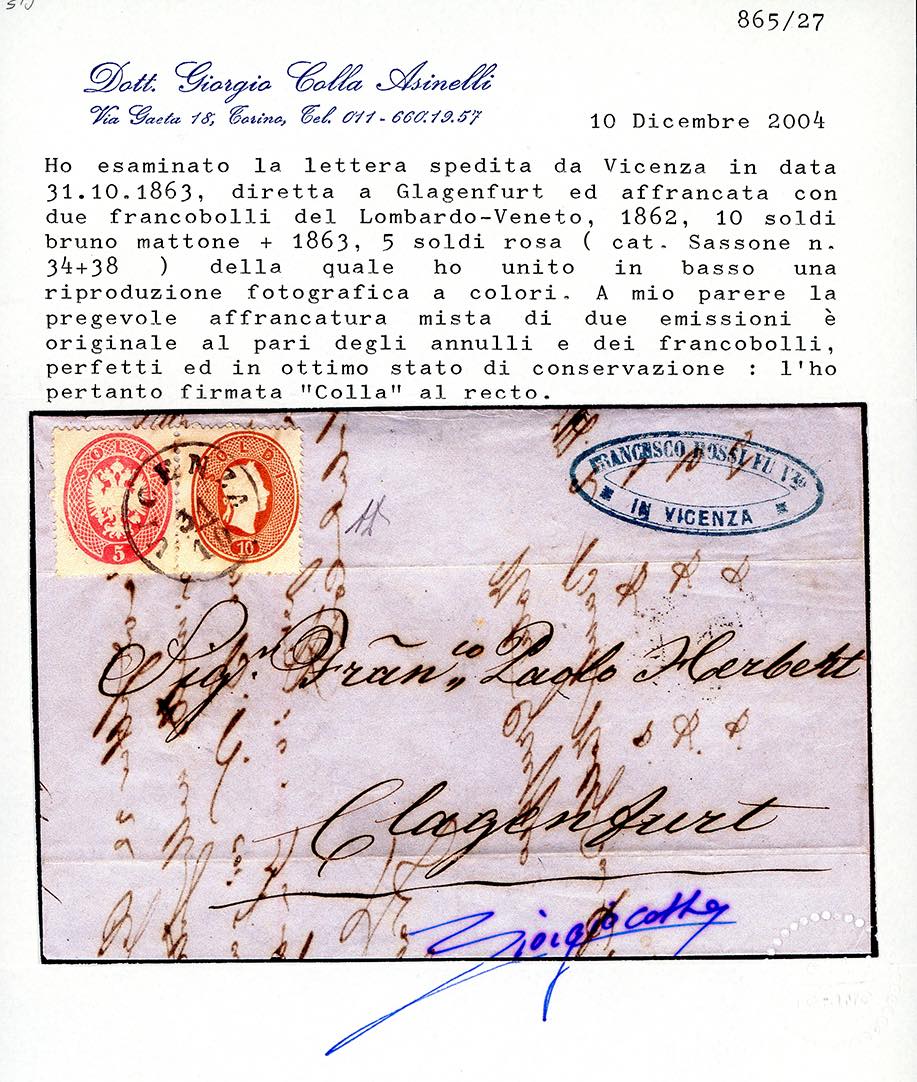 865/27
Dott. Giorgio Colla Asinelli
Via Gaeta 18, Torino, Tel. 011-660.19.57
10 Dicembre 2004
Ho esaminato la lettera spedita da Vicenza in data
31.10.1863, diretta a Glagenfurt ed affrancata con
due francobolli del Lombardo-Veneto, 1862, 10 soldi
bruno mattone + 1863, 5 soldi rosa ( cat. Sassone n.
34+38 ) della quale ho unito in basso una
riproduzione fotografica a colori. A mio parere la
pregevole affrancatura mista di due emissioni è
originale al pari degli annulli e dei francobolli,
perfetti ed in ottimo stato di conservazione : l'ho
pertanto firmata "Colla" al recto.
SOLDI
5
SOLDI
10
VICENZA
31
10
FRANCESCO ROSSI FU Vzo
IN VICENZA
Sigr. Frãnco Paolo Herbert
Clagenfurt
Giorgio Colla